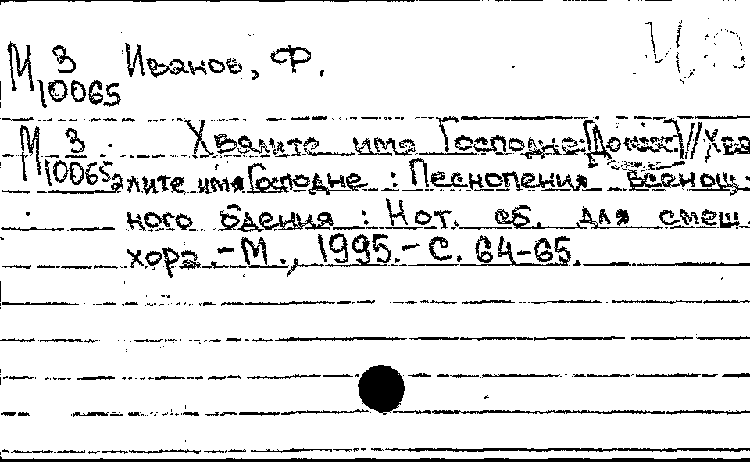 М 3 Иванов, Ф.
10065
М 3 Хвалите имя Господне: [Ноты] // Хва
10065 алите имя Господне : Песнопения всенощ-
ного бдения : Нот. сб. для смеш.
хора. - М., 1995. - С. 64-65.